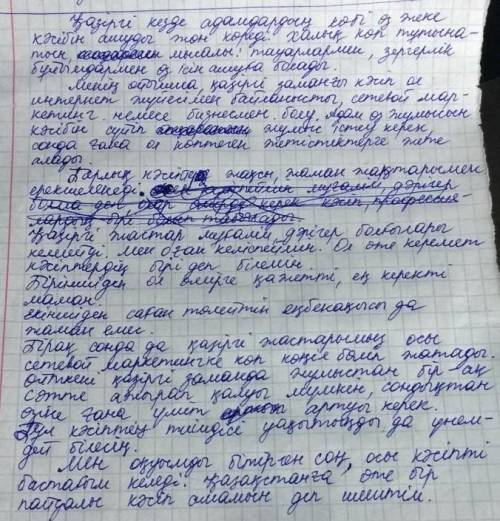 Қазіргі кезде адамдардың көбі өз жеке
кәсібін ашуды жөн көреді. Халық көп тұтына-
тын, мысалы: тауарлармен, зергерлік
бұйымдармен өз ісін ашуға болады.
Менің ойымша, қазіргі заманғы кәсіп ол
интернет жүйесімен байланысты, сетевой мар-
кетинг немесе бизнесмен болу. Адам өз жұмысын
кәсібін сүйіп жұмыс істеу керек,
сонда ғана ол көптеген жетістіктерге жете
алады.
Барлық кәсіптер жақсы, жаман жақтарымен
ерекшеленеді.
Қазіргі жастар мұғалім, дәрігер болғылары
келмейді, мен оған келіспеймін. Ол өте керемет
кәсіптердің бірі деп білемін.
Біріншіден ол өмірге қажетті, ең керекті
маман.
екіншіден саған төлейтін еңбекақысы да
жаман емес.
Бірақ сонда да қазіргі жастарымыз осы
сетевой маркетингке көп көңіл бөліп жатады.
Өйткені қазіргі заманда жұмыстан бір ақ
сәтте айырылып қалуы мүмкін, сондықтан
өзіне ғана үміт артуы керек.
Бұл кәсіптің тиімдісі уақытыңды да үнем-
дей білесің.
Мен оқуымды бітірген соң, осы кәсіпті
бастағым келеді. Қазақстанға өте бір
пайдалы кәсіп аламын деп шештім.